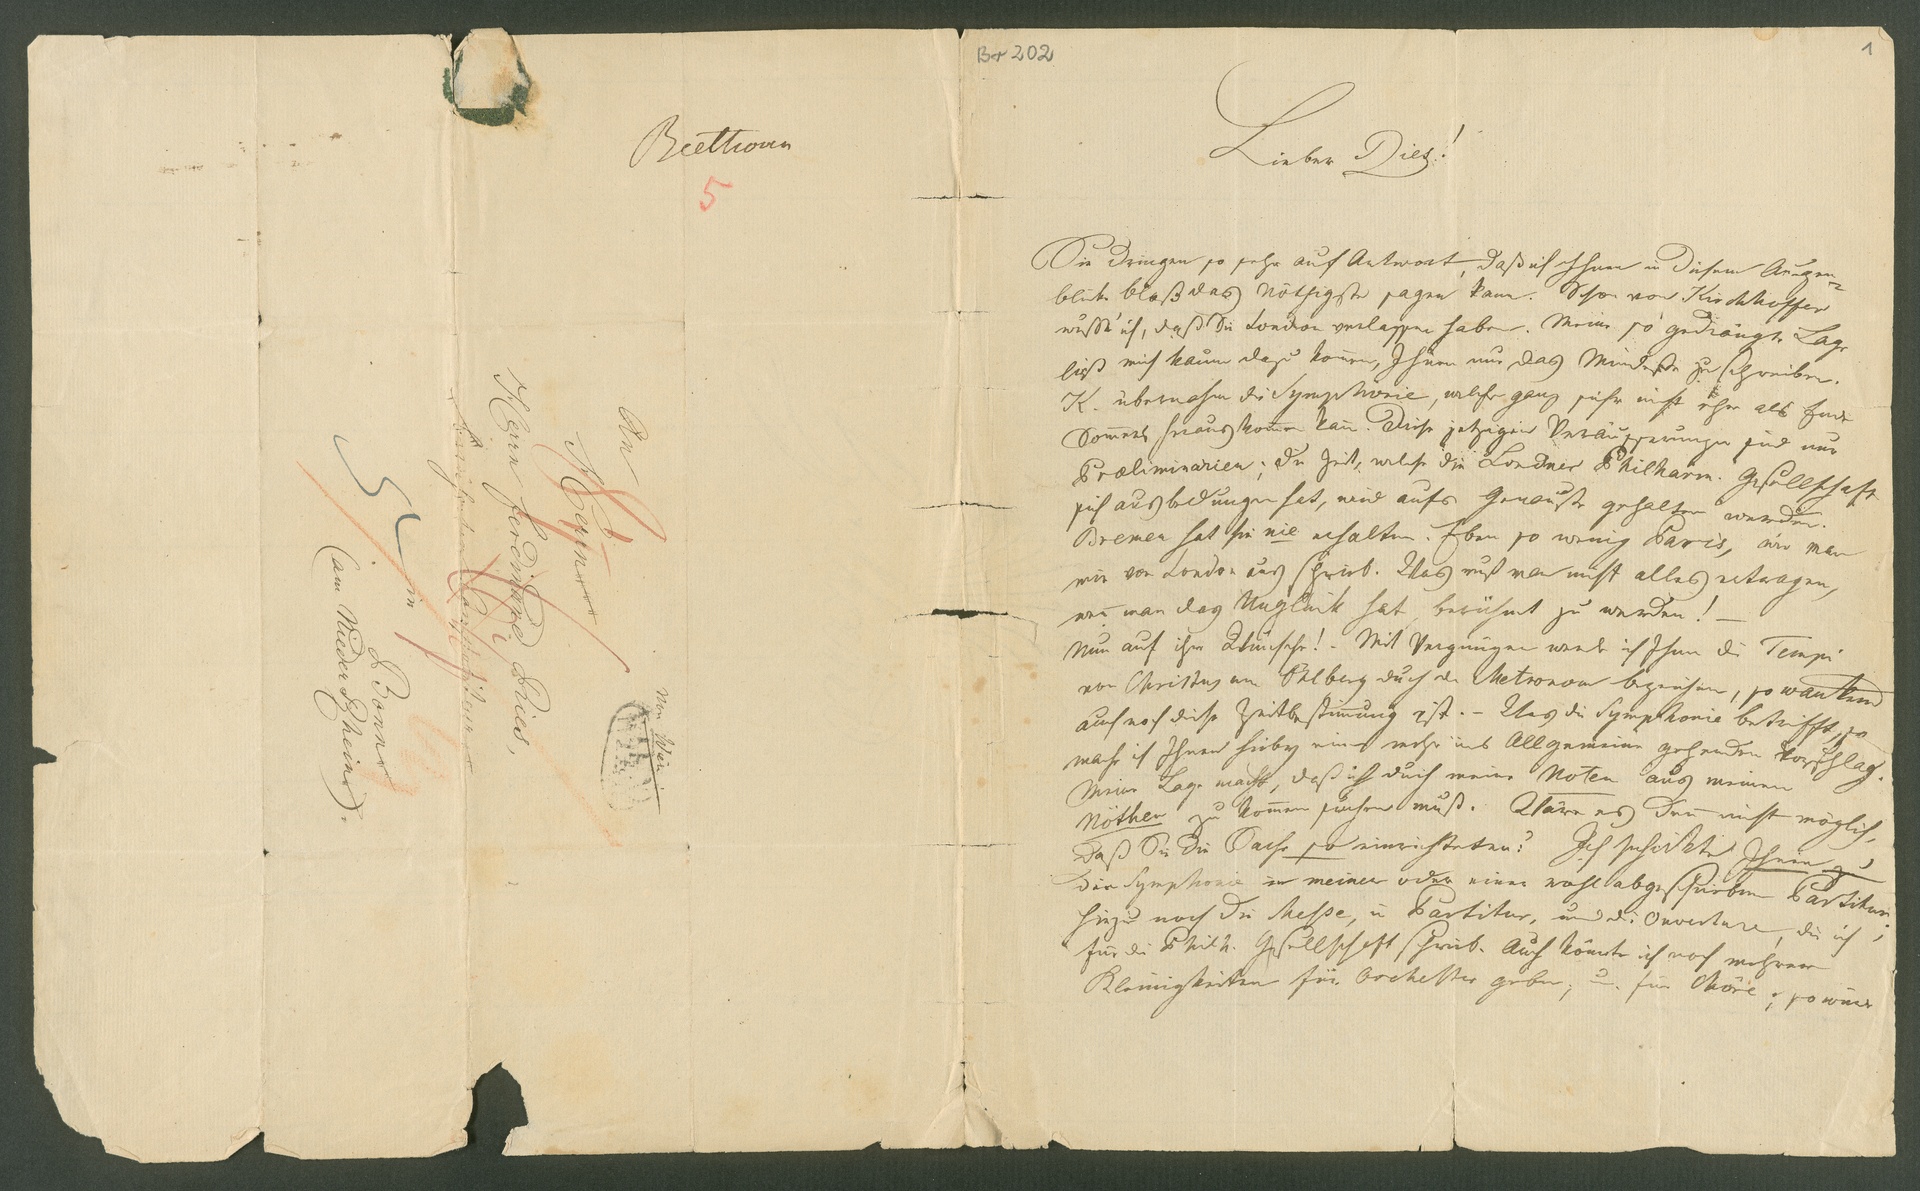 Beethoven
5
An
Herrn
Herrn Ferdinand Ries,
in
Bonn
(am Nieder Rhein).
von Wien
Br 202
1
Lieber Ries!
Sie dringen so sehr auf Antwort, daß ich Ihnen in diesem Augen-
blicke bloß das Nöthigste sagen kann. Schon von Kirchhoffer
wußt' ich, daß Sie London verlassen haben. Meine so gedrängte Lage
ließ mich kaum dazu kommen, Ihnen nur das Mindeste zu schreiben.
K. übernahm die Symphonie, welche ganz sicher nicht eher als Ende
Sommers herauskommen kann. Diese jetzigen Veräusserungen sind nur
Præliminarien; die Zeit, welche die Londner Philharm. Gesellschaft
sich ausbedungen hat, wird aufs Genauste gehalten werden.
Bremen hat sie nie erhalten. Eben so wenig Paris, wie man
mir von London aus schrieb. Was muß man nicht alles ertragen,
wenn man das Unglück hat, berühmt zu werden! –
Nun auf ihre Wünsche! – Mit Vergnügen werde ich Ihnen die Tempi
von Christus am Öhlberg durch den Metronom bezeichnen, so wankend
auch noch diese Zeitbestimmung ist. – Was die Symphonie betrifft, so
mache ich Ihnen hieby einen mehr ins Allgemeine gehenden Vorschlag.
Meine Lage macht, daß ich durch meine Noten aus meinen
Nöthen zu kommen suchen muß. Wäre es denn nicht möglich,
daß Sie die Sache so einrichteten? Ich schickte Ihnen
die Symphonie in meiner oder einer wohl abgeschriebnen Partitur;
hiezu noch die Messe, in Partitur, und die Ouverture, die ich
für die Philh. Gesellschaft schrieb. Auch könnte ich noch mehrere
Kleinigkeiten für Orchester geben, u. für Chöre; so wäre